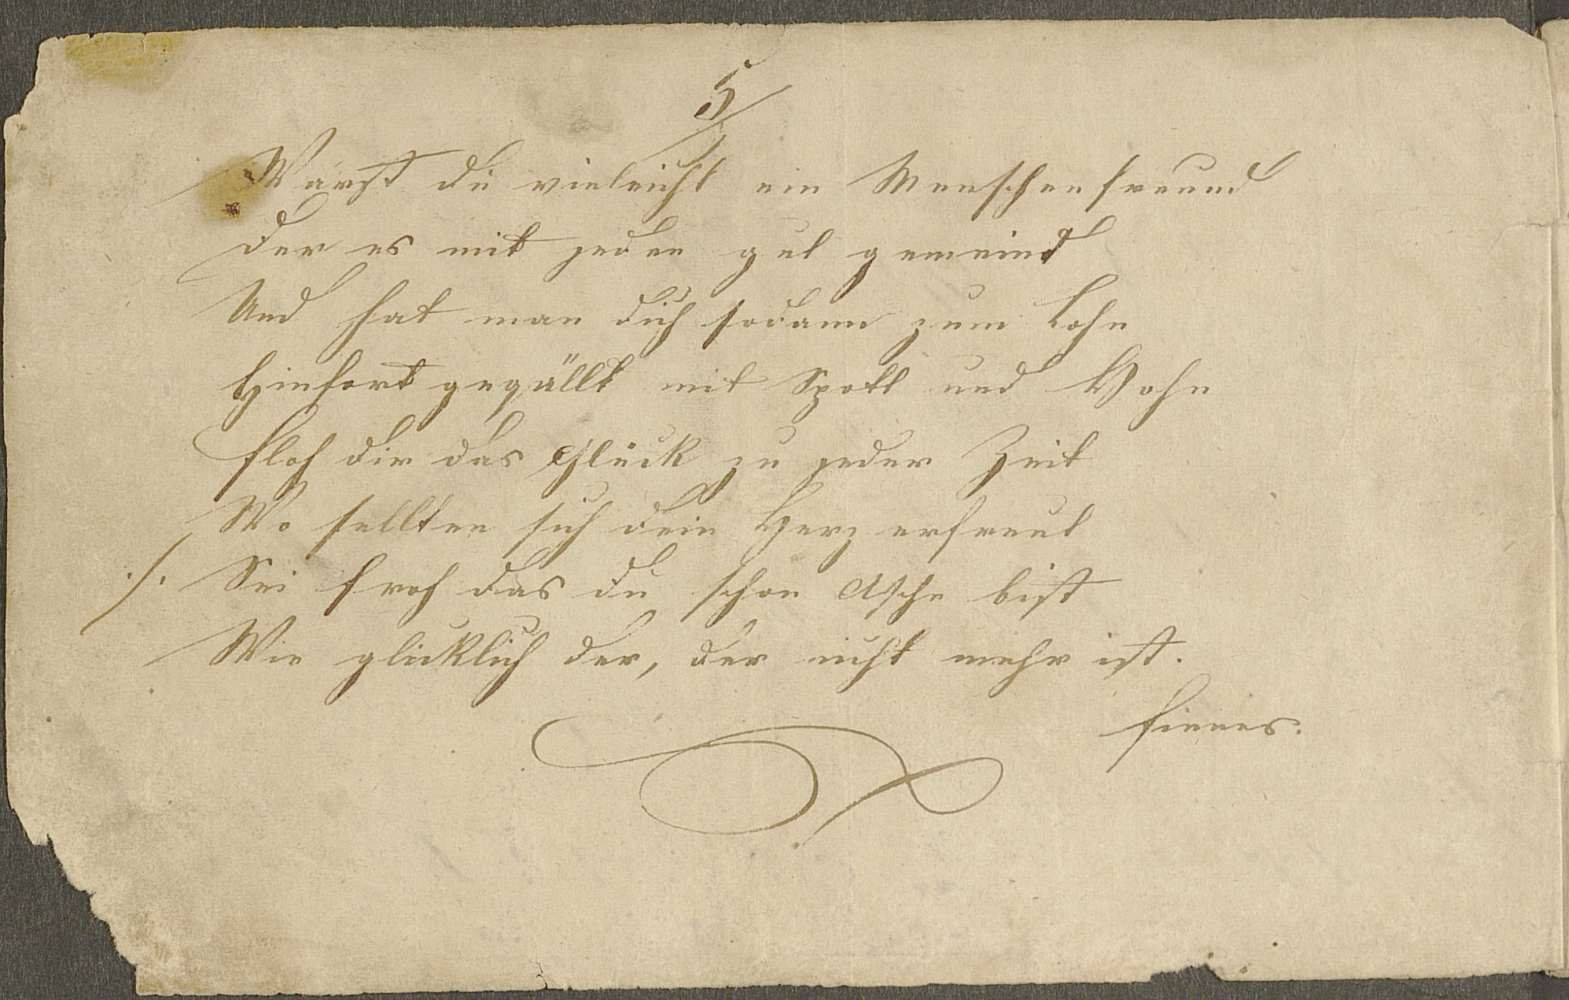 5/
Warst du vieleicht ein Menschenfreund
Der es mit jeden gut gemeint
Und hat man dich sodann zum Lohn
Hinfort gequällt mit Spott und Hohn
Floh dir das Glück zu jeder Zeit
Wo sellten sich dein Herz erfreut
./. Sei froh das du schon Asche bist
Wie glücklich der, der nicht mehr ist.
Finnes.